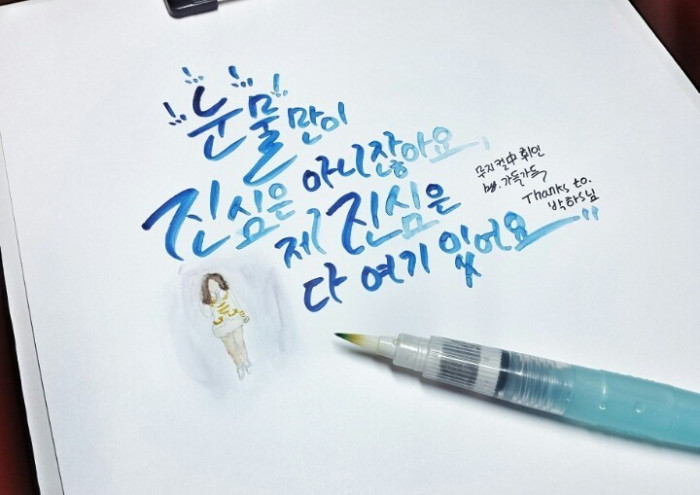 "눈물만이
진심은 아니잖아요,
제 진심은
다 여기 있어요"
뮤지컬中 휘인
by. 가득가득
Thanks to.
박하s님